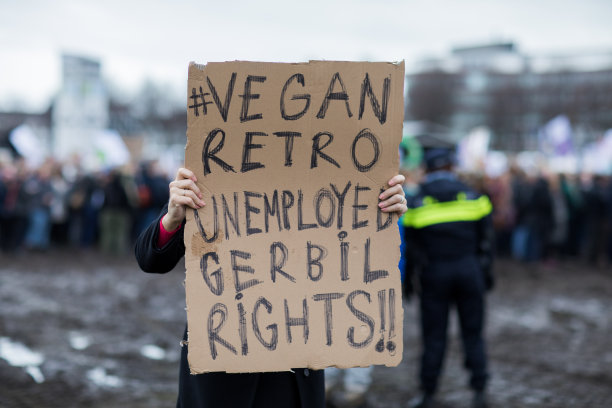 #VEGAN
RETRO
UNEMPLOYED
GERBiL
RiGHTS!!